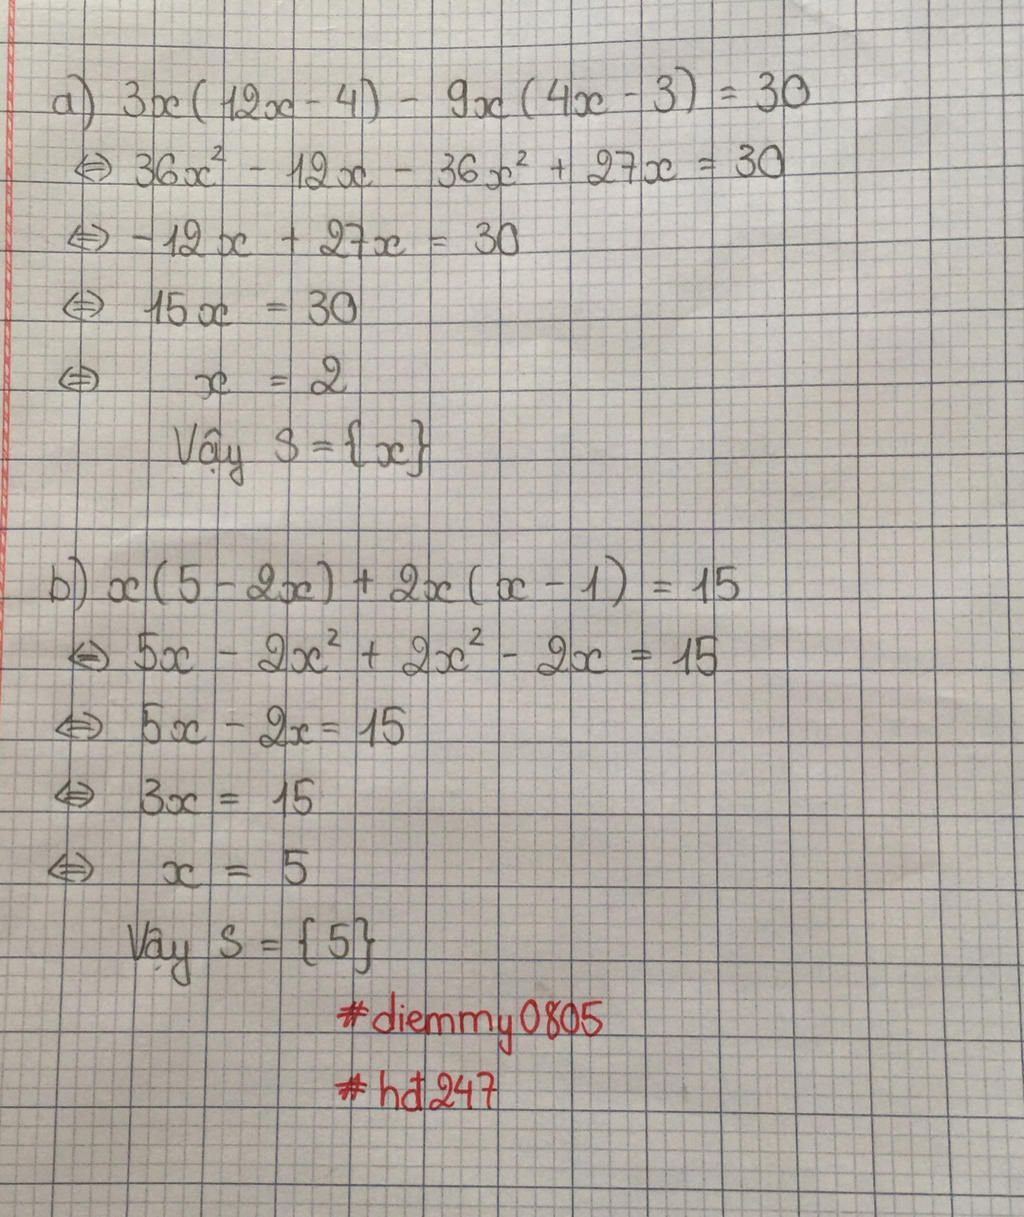 a) 3x(12x - 4) - 9x(4x - 3) = 30
⇔ 36x² - 12x - 36x² + 27x = 30
⇔ -12x + 27x = 30
⇔ 15x = 30
⇔ x = 2
Vậy S = {x}
b) x(5 - 2x) + 2x(x - 1) = 15
⇔ 5x - 2x² + 2x² - 2x = 15
⇔ 5x - 2x = 15
⇔ 3x = 15
⇔ x = 5
Vậy S = {5}
#diemmy0805
#hđ247